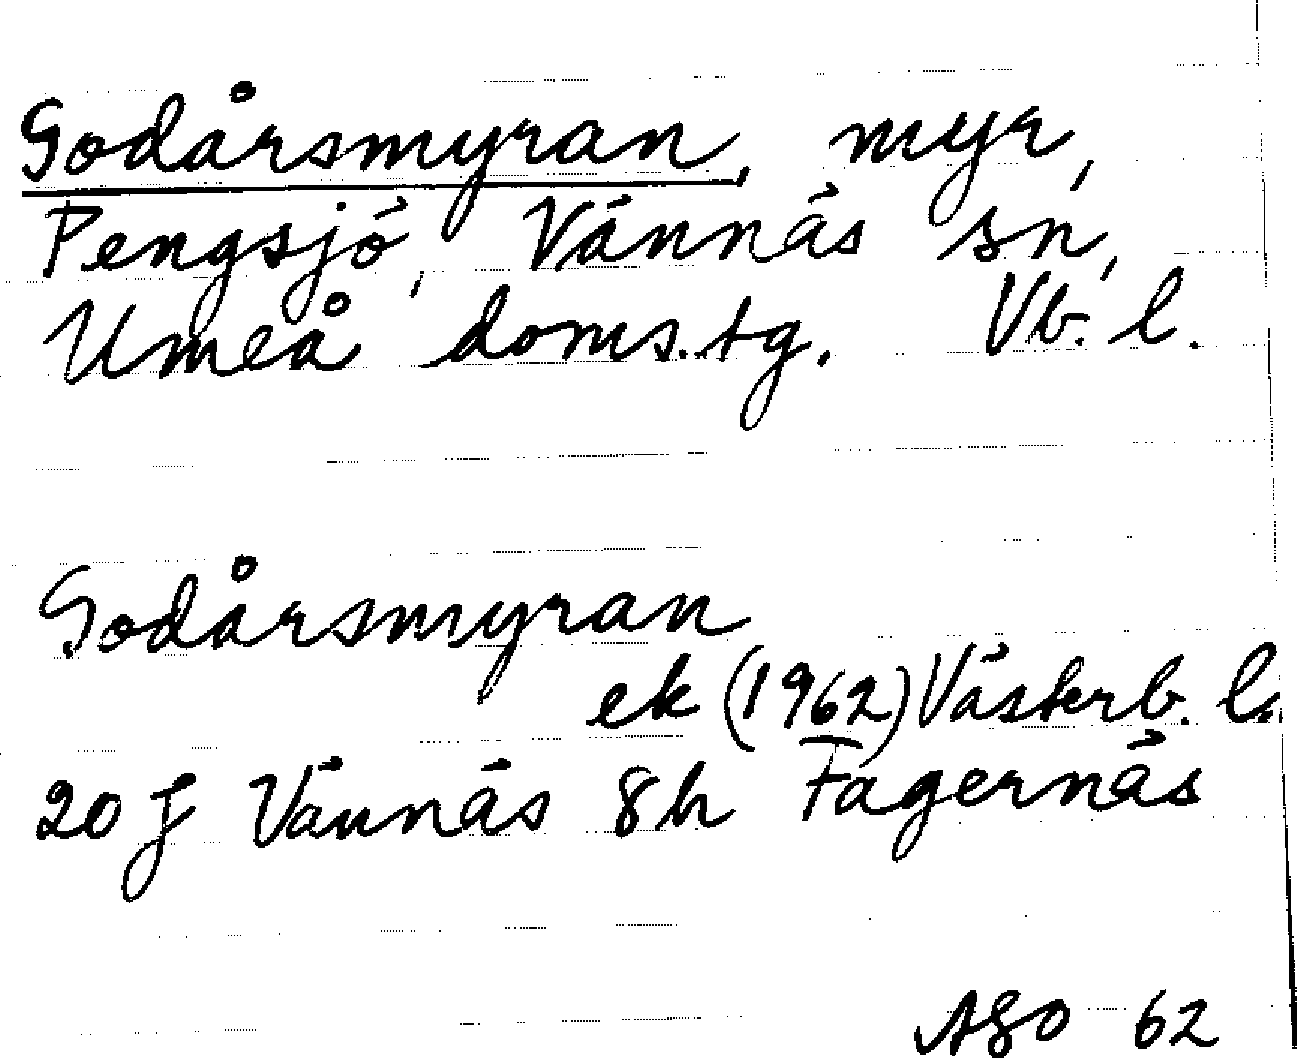 Godårsmyran, myr,
Pengsjö, Vännäs sn,
Umeå doms.tg. Vb. l.
Godårsmyran
ek (1962) Västerb. l.
20 J Vännäs 8h Fagernäs
ASO 62